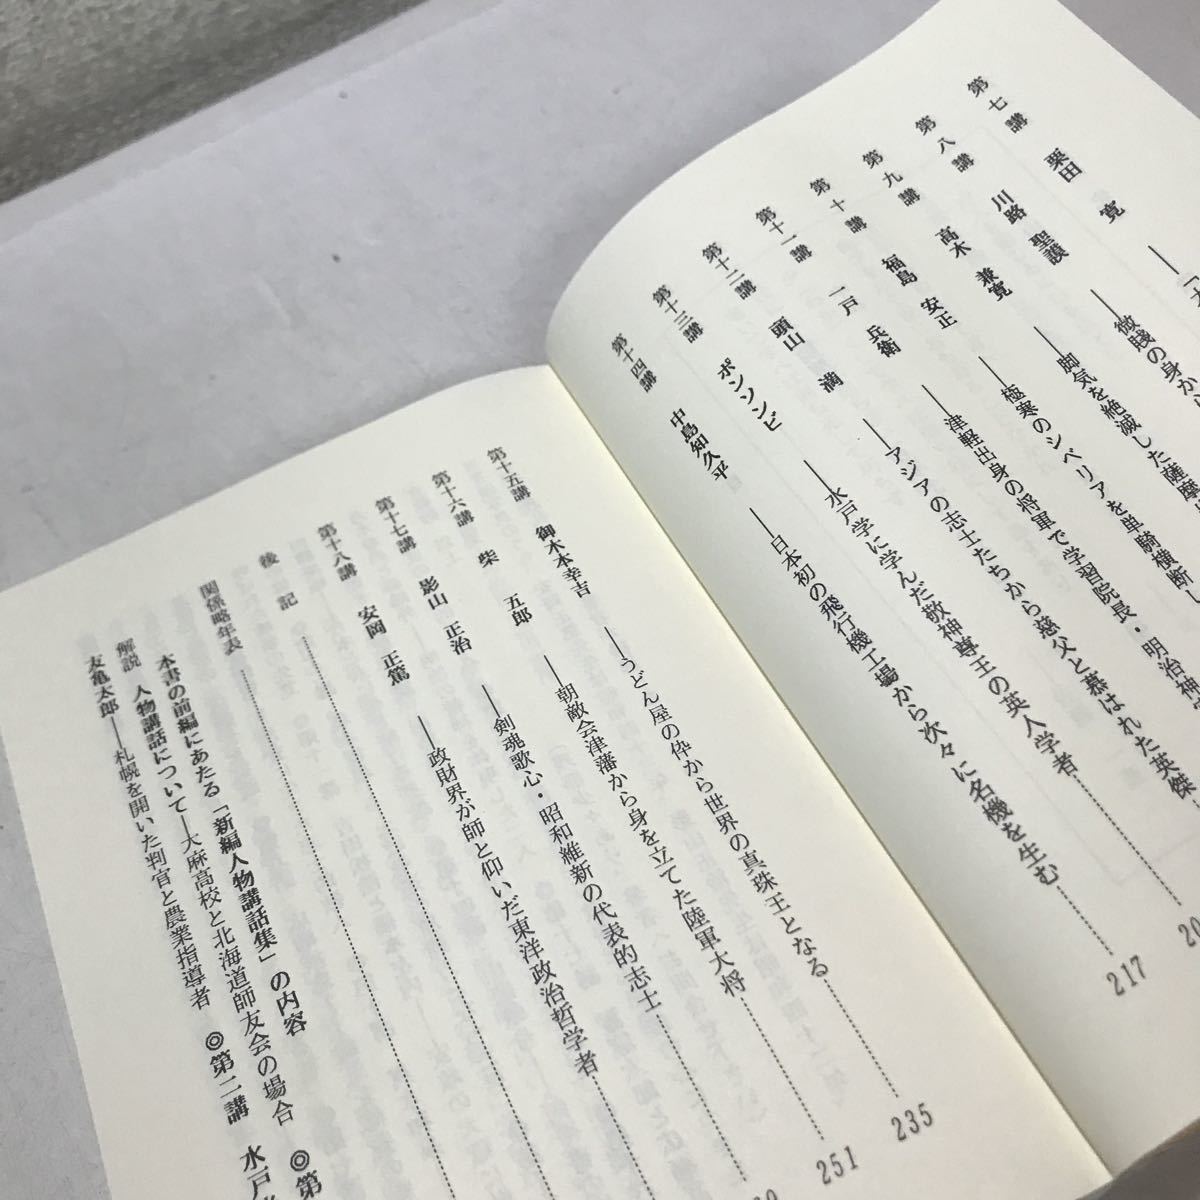 第七講　栗田　寛
第八講　川路　聖謨――微賤の身から
第九講　高木　兼寛――脚気を絶滅した薩摩
第十講　福島　安正――極寒のシベリアを単騎横断し
第十一講　一戸　兵衛――津軽出身の将軍で学習院長・明治神
第十二講　頭山　満――アジアの志士たちから慈父と慕はれた英傑
第十三講　ポンソンビ――水戸学に学んだ敬神尊王の英人学者 20
第十四講　中島知久平――日本初の飛行機工場から次々に名機を生む 217
第十五講　御木本幸吉――うどん屋の伜から世界の真珠王となる 235
第十六講　柴　五郎――朝敵会津藩から身を立てた陸軍大将 251
第十七講　影山　正治――剣魂歌心・昭和維新の代表的志士
第十八講　安岡　正篤――政財界が師と仰いだ東洋政治哲学者
後　記
関係略年表
本書の前編にあたる「新編人物講話集」の内容
解説　人物講話について―大麻高校と北海道師友会の場合　◎第
友亀太郎――札幌を開いた判官と農業指導者　◎第二講　水戸